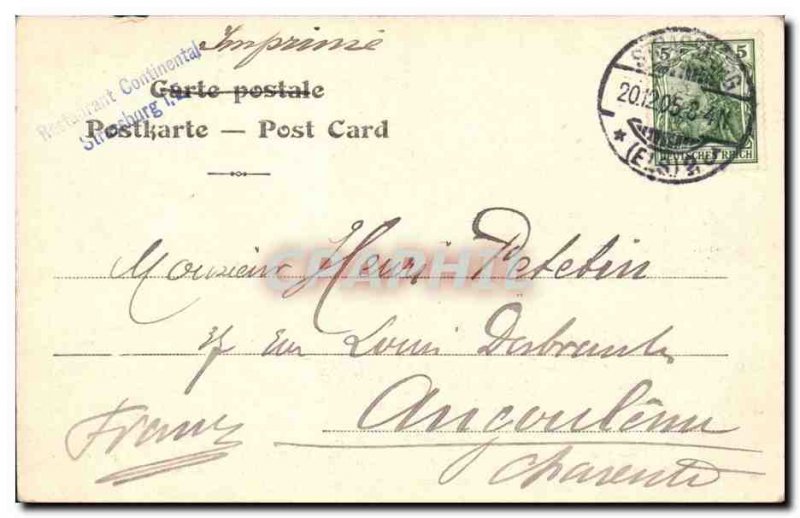 Imprimé
Restaurant Continental
Strassburg i.
Carte postale
Postkarte — Post Card
5 5
STRASSBURG
20.12.05. 3-4N
* (ELS.) 2
DEUTSCHES REICH
Monsieur Henri Petetin
rue Louis Desbrandes
Angoulême
Charente
France
CPAPHIL